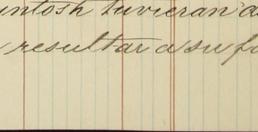 intosh tuvieran a
resultar a su fa